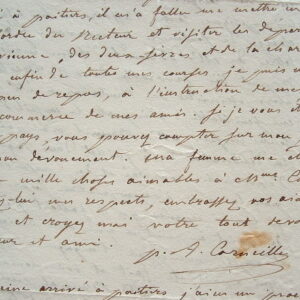 à poitiers, il m'a fallu me mettre en
ordre du Recteur et visiter les depar
vienne, des deux sèvres et de la cha
enfin de toutes mes courses, je puis
de repos, à l'instruction de me
commerce de mes amis. Si je vous
pays, vous pouvez compter sur mon
devouement. ma femme me
mille choses aimables à
mes respects, embrassez vos
et croyez moi votre tout devou
et ami.
p. A. Corneille
arrivé à poitiers j'ai un